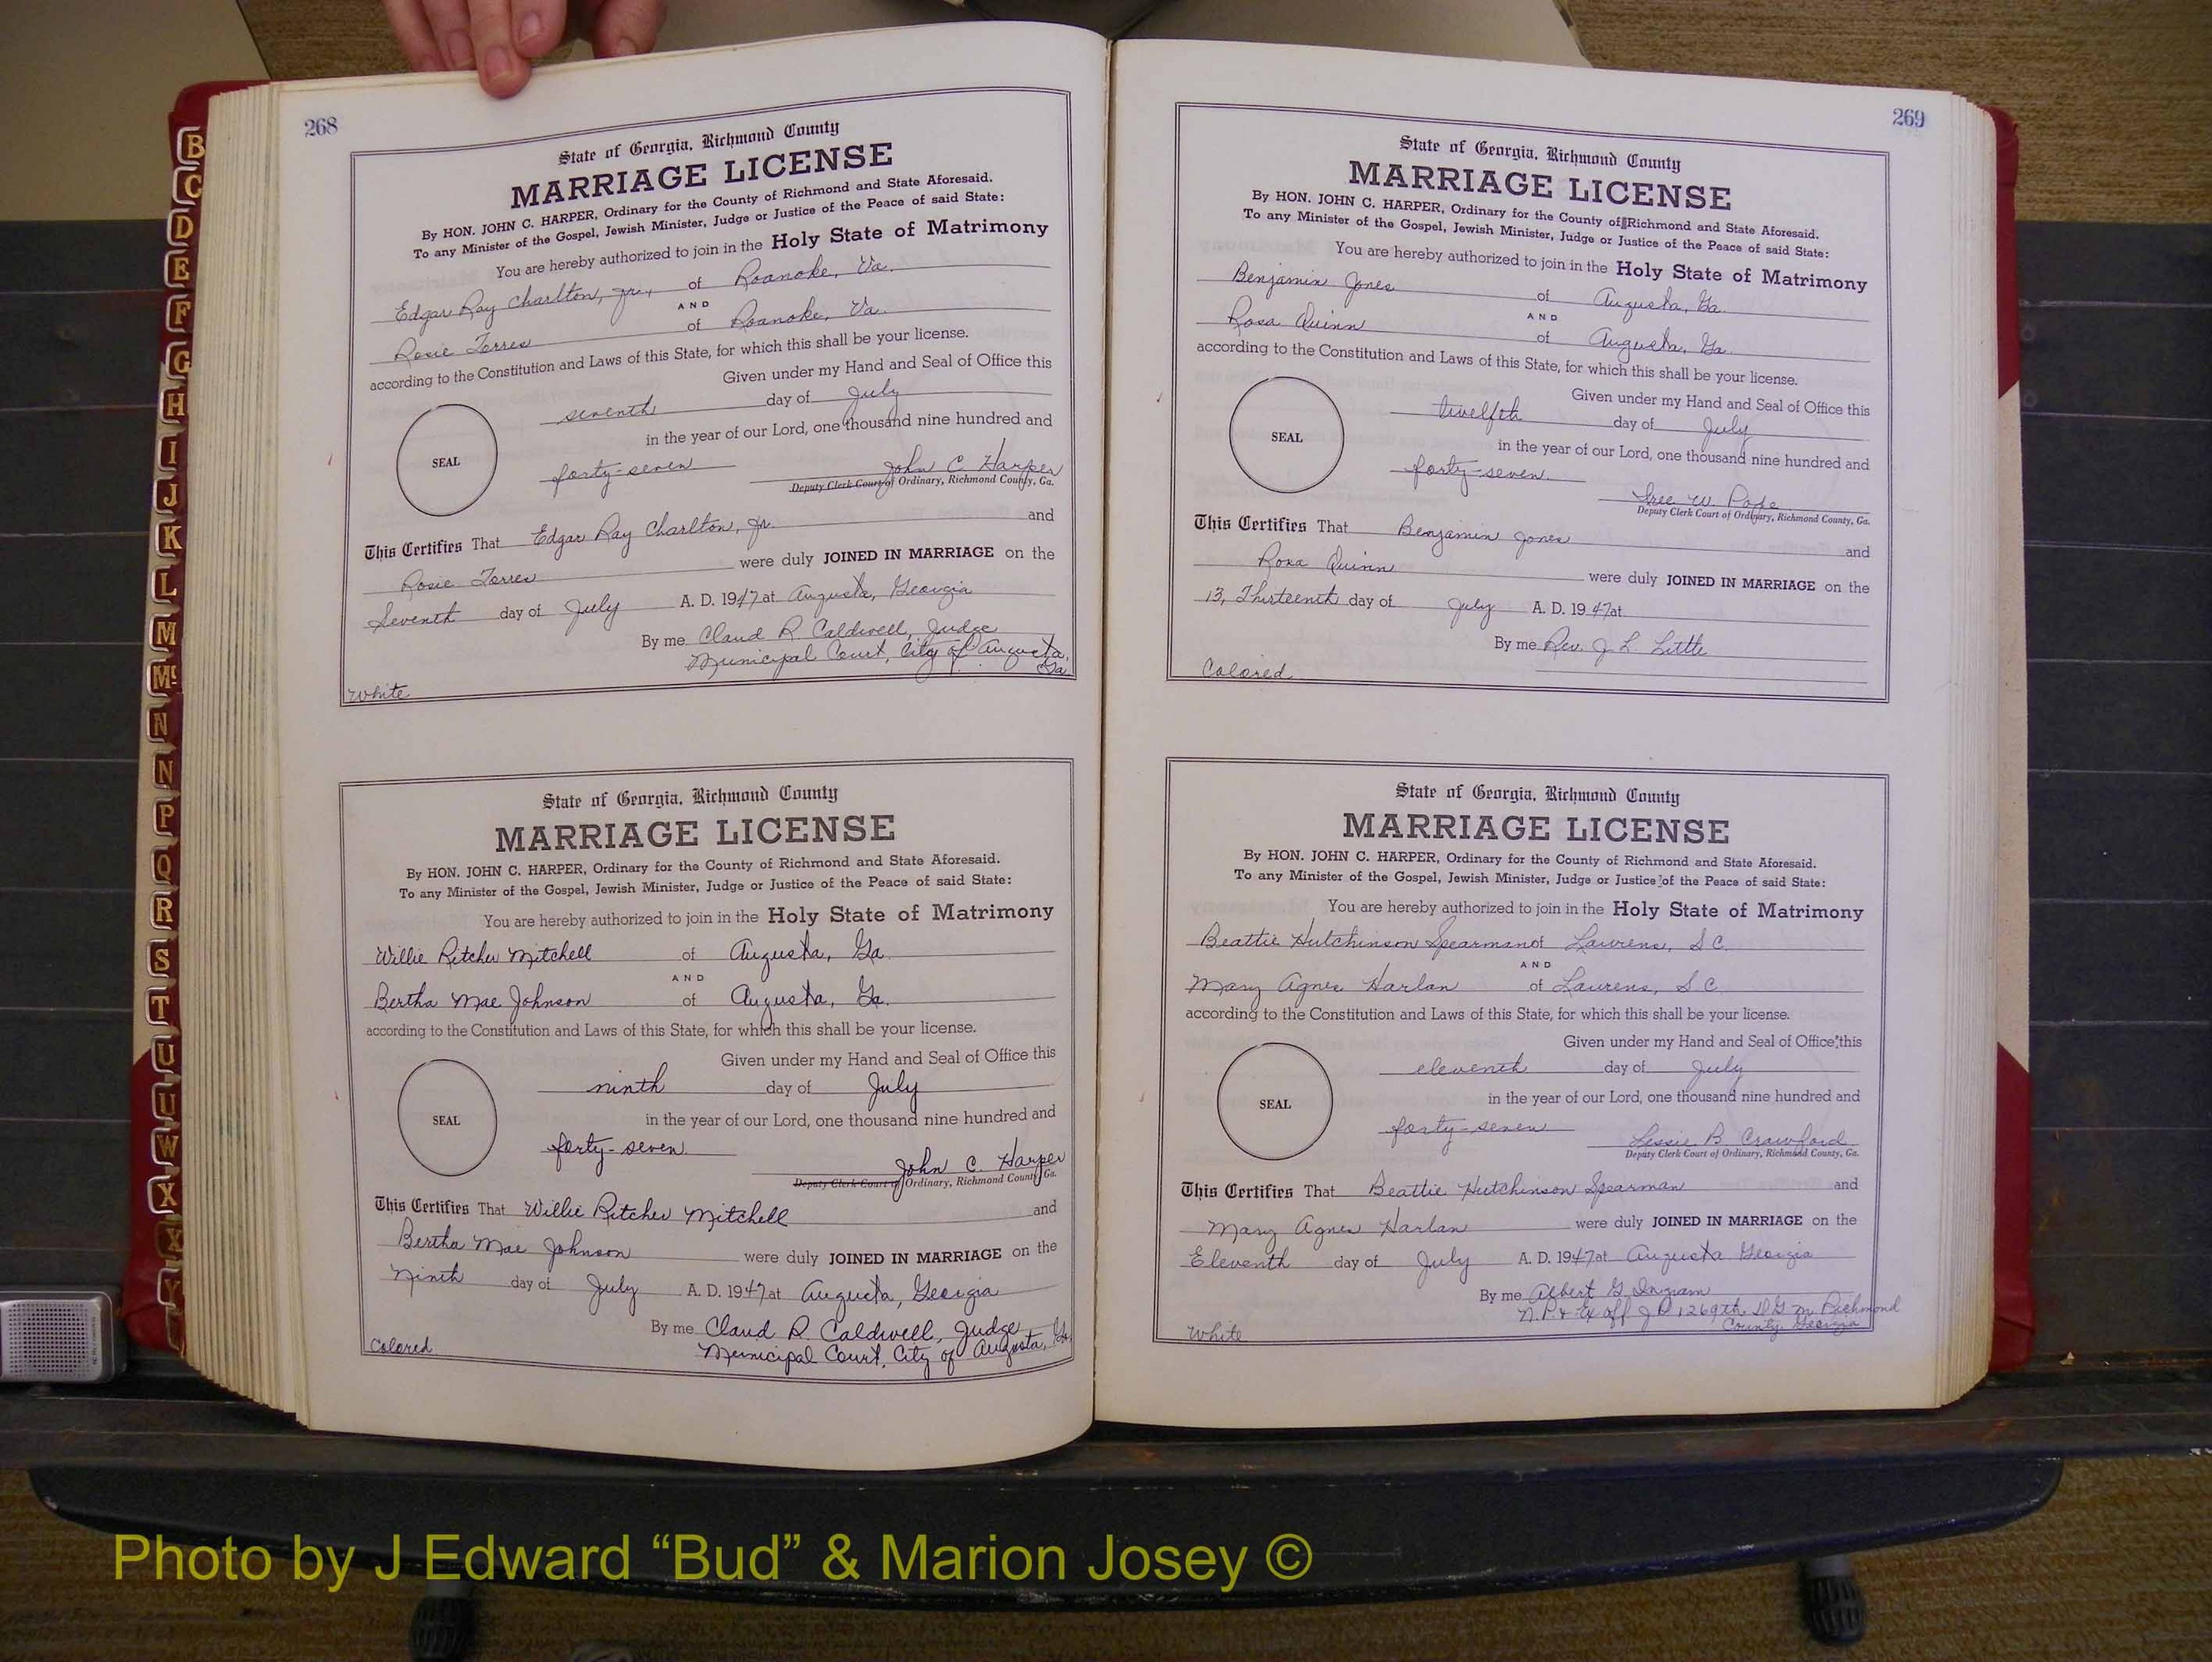 268
State of Georgia, Richmond County
MARRIAGE LICENSE
By HON. JOHN C. HARPER, Ordinary for the County of Richmond and State Aforesaid.
To any Minister of the Gospel, Jewish Minister, Judge or Justice of the Peace of said State:
You are hereby authorized to join in the Holy State of Matrimony
Edgar Ray Charlton, Jr., of Roanoke, Va.
AND
Rosie Torres of Roanoke, Va.
according to the Constitution and Laws of this State, for which this shall be your license.
Given under my Hand and Seal of Office this
seventh day of July
in the year of our Lord, one thousand nine hundred and
SEAL
forty-seven
John C. Harper
Deputy Clerk Court of Ordinary, Richmond County, Ga.
This Certifies That Edgar Ray Charlton, Jr. and
Rosie Torres were duly JOINED IN MARRIAGE on the
Seventh day of July A. D. 1947 at Augusta, Georgia
By me Claud R. Caldwell, Judge
Municipal Court, City of Augusta,
Ga.
White
State of Georgia, Richmond County
MARRIAGE LICENSE
By HON. JOHN C. HARPER, Ordinary for the County of Richmond and State Aforesaid.
To any Minister of the Gospel, Jewish Minister, Judge or Justice of the Peace of said State:
You are hereby authorized to join in the Holy State of Matrimony
Willie Ritcher Mitchell of Augusta, Ga.
AND
Bertha Mae Johnson of Augusta, Ga.
according to the Constitution and Laws of this State, for which this shall be your license.
Given under my Hand and Seal of Office this
ninth day of July
in the year of our Lord, one thousand nine hundred and
SEAL
forty-seven.
John C. Harper
Deputy Clerk Court of Ordinary, Richmond County, Ga.
This Certifies That Willie Ritcher Mitchell and
Bertha Mae Johnson were duly JOINED IN MARRIAGE on the
Ninth day of July A. D. 1947 at Augusta, Georgia
By me Claud R. Caldwell, Judge
Municipal Court, City of Augusta, Ga.
Colored
269
State of Georgia, Richmond County
MARRIAGE LICENSE
By HON. JOHN C. HARPER, Ordinary for the County of Richmond and State Aforesaid.
To any Minister of the Gospel, Jewish Minister, Judge or Justice of the Peace of said State:
You are hereby authorized to join in the Holy State of Matrimony
Benjamin Jones of Augusta, Ga.
AND
Rosa Quinn of Augusta, Ga.
according to the Constitution and Laws of this State, for which this shall be your license.
Given under my Hand and Seal of Office this
twelfth day of July
in the year of our Lord, one thousand nine hundred and
SEAL
forty-seven.
W. Pope
Deputy Clerk Court of Ordinary, Richmond County, Ga.
This Certifies That Benjamin Jones and
Rosa Quinn were duly JOINED IN MARRIAGE on the
13, Thirteenth day of July A. D. 1947 at
By me Rev. J. L. Little
Colored
State of Georgia, Richmond County
MARRIAGE LICENSE
By HON. JOHN C. HARPER, Ordinary for the County of Richmond and State Aforesaid.
To any Minister of the Gospel, Jewish Minister, Judge or Justice of the Peace of said State:
You are hereby authorized to join in the Holy State of Matrimony
Beattie Hutchinson Spearman of Laurens, S C
AND
Mary Agnes Harlan of Laurens, S C
according to the Constitution and Laws of this State, for which this shall be your license.
Given under my Hand and Seal of Office this
eleventh day of July
in the year of our Lord, one thousand nine hundred and
SEAL
forty-seven
Lessie B. Crawford
Deputy Clerk Court of Ordinary, Richmond County, Ga.
This Certifies That Beattie Hutchinson Spearman and
Mary Agnes Harlan were duly JOINED IN MARRIAGE on the
Eleventh day of July A. D. 1947 at Augusta Georgia
By me Albert G. Ingram
N.P. & Ex off J P 1269th D G M Richmond
County Georgia
White
B
C
D
E
F
G
H
I
J
K
L
M
Mc
N
N
P
Q
R
S
T
U
U
W
X
X
Y
Photo by J Edward “Bud” & Marion Josey ©